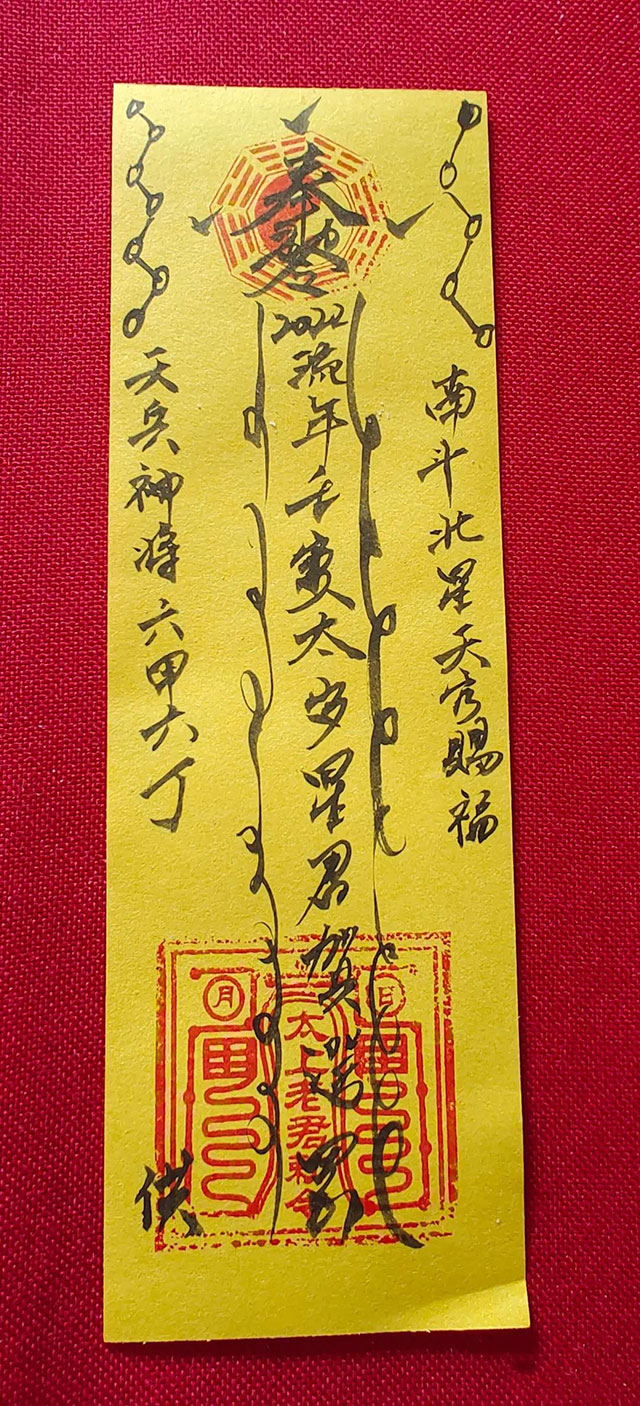 奉敕令
南斗北星天官賜福
2022流年壬寅太岁星君賀
天兵神将六甲六丁
供
日
太上老君敕令
月